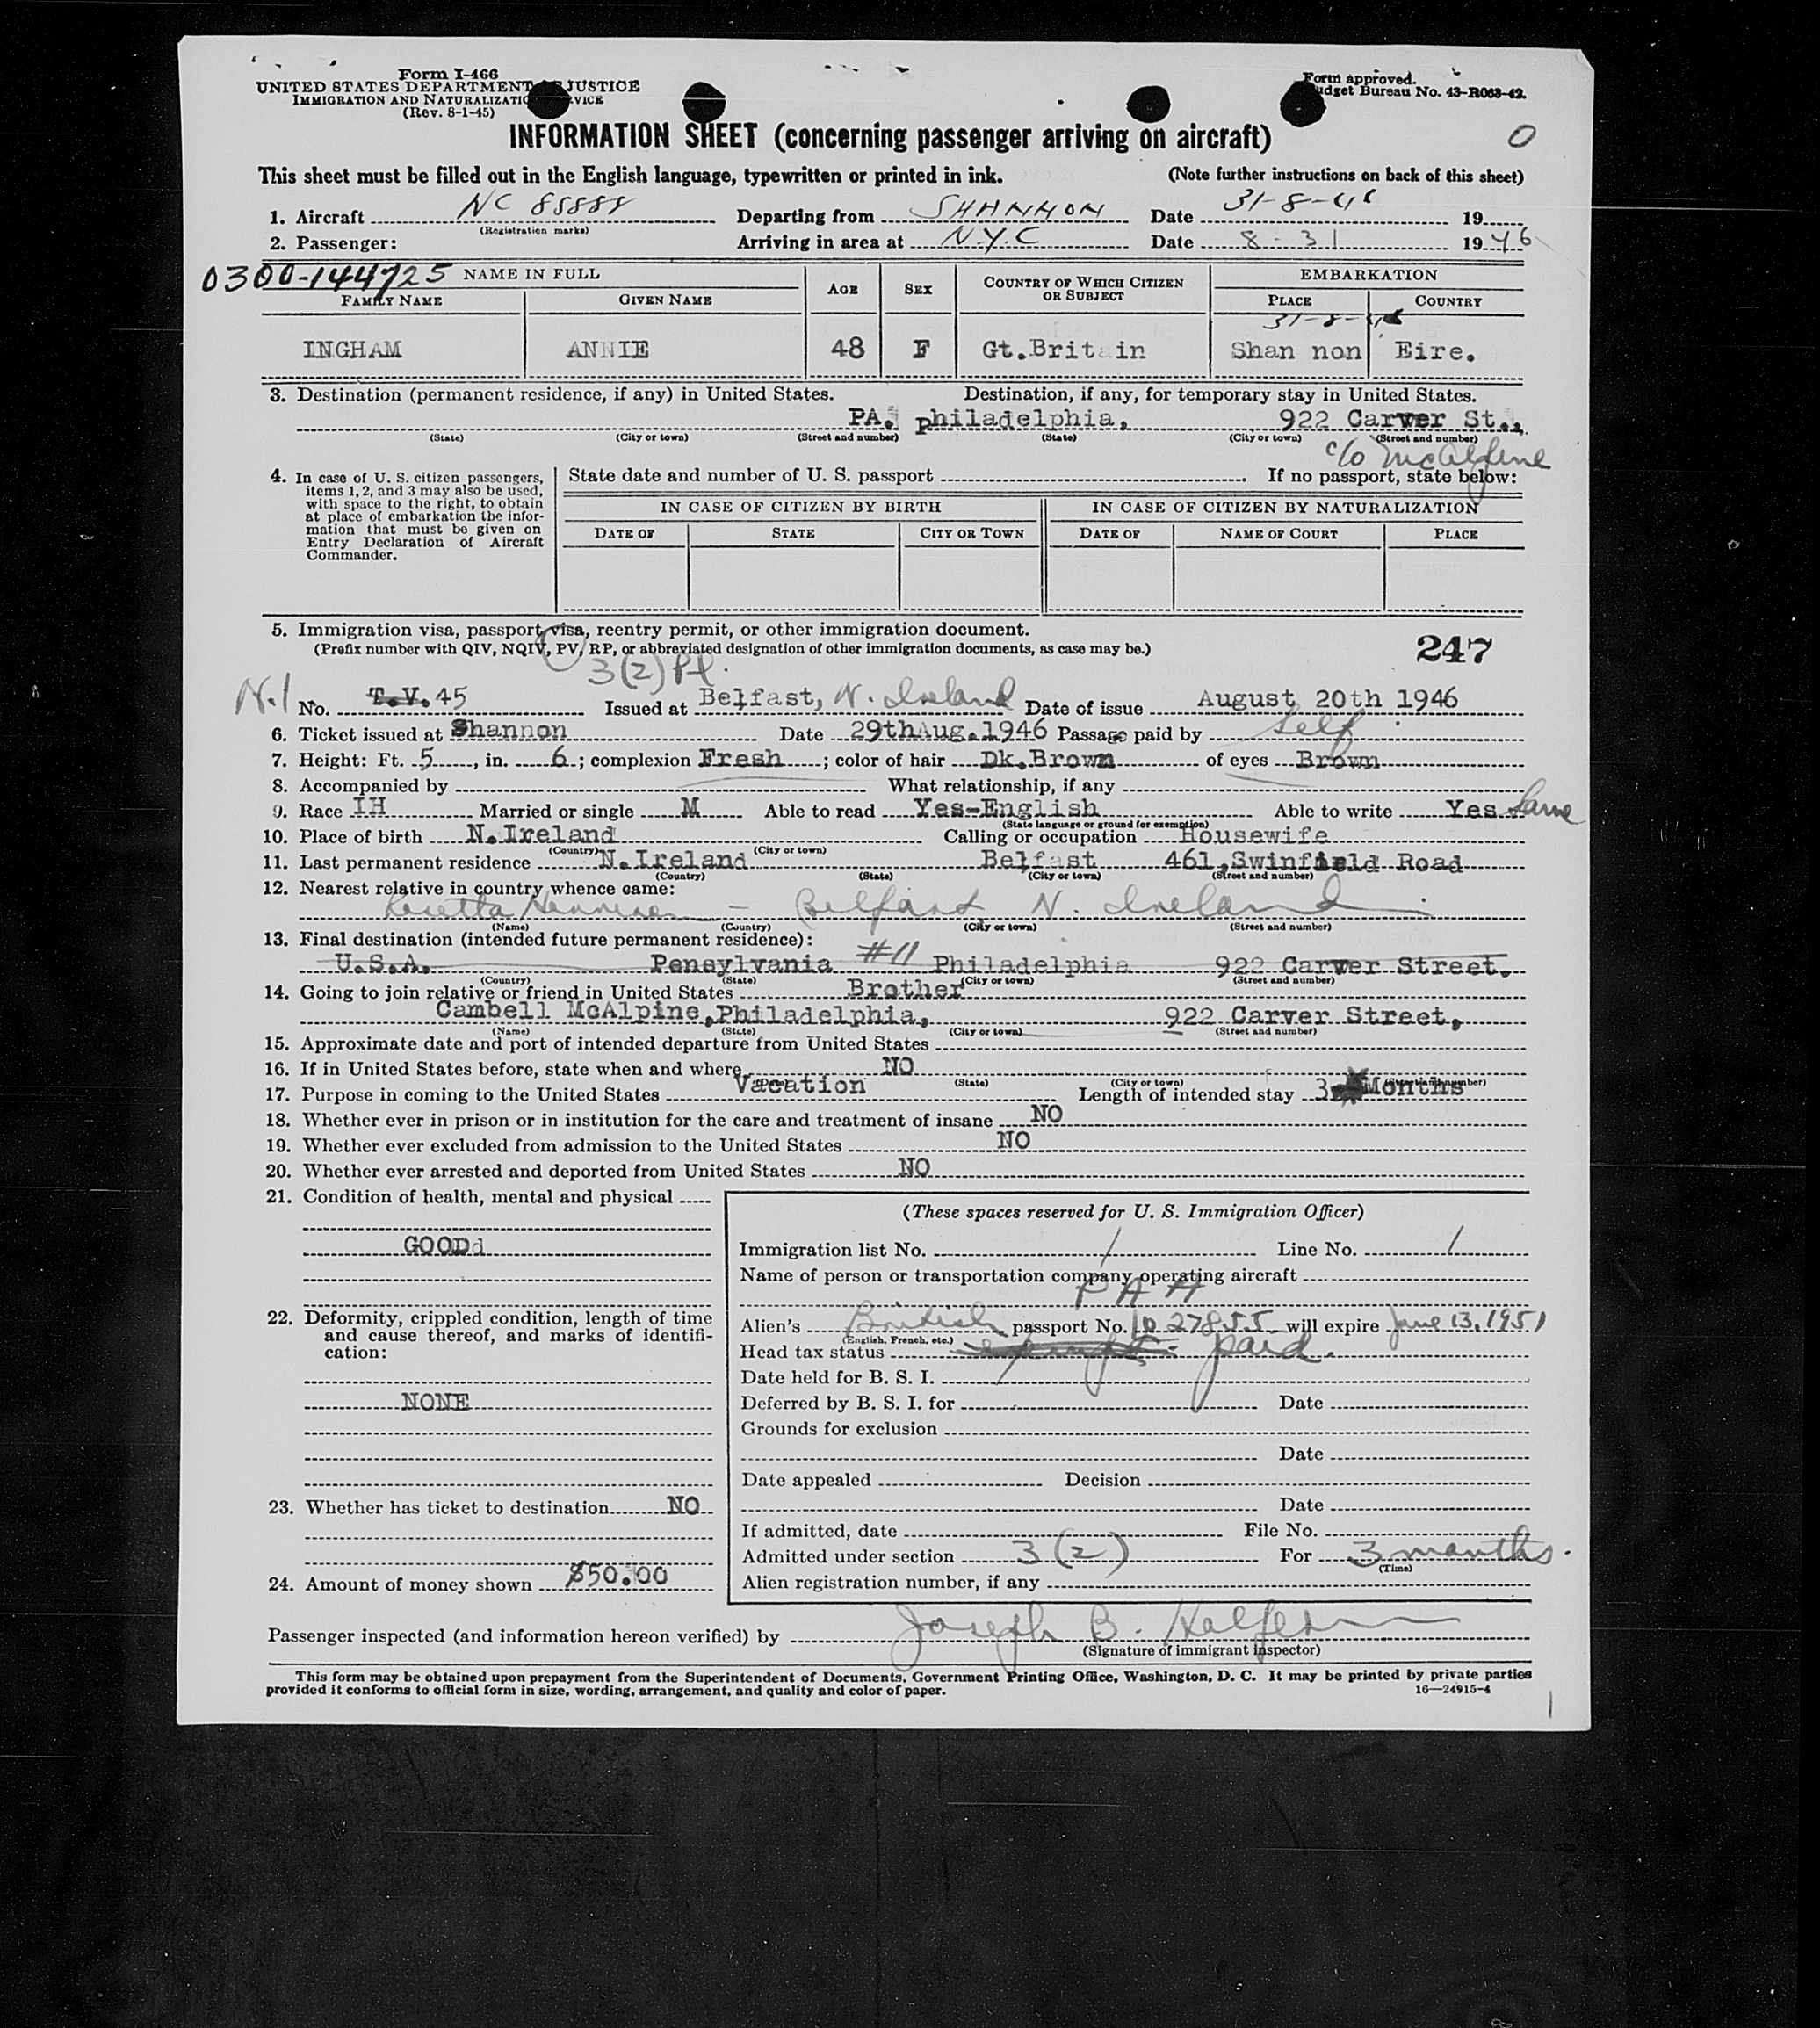 Form I-466
UNITED STATES DEPARTMENT JUSTICE
IMMIGRATION AND NATURALIZATION SERVICE
(Rev. 8-1-45)
Form approved.
Budget Bureau No. 43-R063-42.
INFORMATION SHEET (concerning passenger arriving on aircraft)
0
This sheet must be filled out in the English language, typewritten or printed in ink. (Note further instructions on back of this sheet)
1. Aircraft NC 88888 Departing from SHANNON Date 31-8-46 19
(Registration marks)
2. Passenger: Arriving in area at N.Y.C Date 8-31 1946
0300-144725 NAME IN FULL AGE SEX COUNTRY OF WHICH CITIZEN OR SUBJECT EMBARKATION
FAMILY NAME GIVEN NAME PLACE COUNTRY
31-8-46
INGHAM ANNIE 48 F Gt.Britain Shan non Eire.
3. Destination (permanent residence, if any) in United States. Destination, if any, for temporary stay in United States.
PA. Philadelphia, 922 Carver St.,
(State) (City or town) (Street and number) (State) (City or town) (Street and number)
c/o McAlpine
4. In case of U. S. citizen passengers, items 1, 2, and 3 may also be used, with space to the right, to obtain at place of embarkation the information that must be given on Entry Declaration of Aircraft Commander.
State date and number of U. S. passport If no passport, state below:
IN CASE OF CITIZEN BY BIRTH IN CASE OF CITIZEN BY NATURALIZATION
DATE OF STATE CITY OR TOWN DATE OF NAME OF COURT PLACE
5. Immigration visa, passport visa, reentry permit, or other immigration document.
(Prefix number with QIV, NQIV, PV, RP, or abbreviated designation of other immigration documents, as case may be.)
247
3(2) Pl.
N.I No. T.V. 45 Issued at Belfast, N. Ireland Date of issue August 20th 1946
6. Ticket issued at Shannon Date 29thAug.1946 Passage paid by Self
7. Height: Ft. 5, in. 6; complexion Fresh; color of hair Dk.Brown of eyes Brown
8. Accompanied by What relationship, if any
9. Race IH Married or single M Able to read Yes-English Able to write Yes Same
(State language or ground for exemption)
10. Place of birth N.Ireland Calling or occupation Housewife
(Country) (City or town)
11. Last permanent residence N.Ireland Belfast 461,Swinfield Road
(Country) (State) (City or town) (Street and number)
12. Nearest relative in country whence came:
Rosetta - Belfast N. Ireland
(Name) (Country) (City or town) (Street and number)
13. Final destination (intended future permanent residence):
U.S.A. Pensylvania #11 Philadelphia 922 Carver Street.
(Country) (State) (City or town) (Street and number)
14. Going to join relative or friend in United States Brother
Cambell McAlpine,Philadelphia, 922 Carver Street,
(Name) (State) (City or town) (Street and number)
15. Approximate date and port of intended departure from United States
16. If in United States before, state when and where NO
(State) (City or town) (Street and number)
17. Purpose in coming to the United States Vacation Length of intended stay 3 Months
18. Whether ever in prison or in institution for the care and treatment of insane NO
19. Whether ever excluded from admission to the United States NO
20. Whether ever arrested and deported from United States NO
21. Condition of health, mental and physical
GOODd
22. Deformity, crippled condition, length of time and cause thereof, and marks of identification:
NONE
23. Whether has ticket to destination NO
24. Amount of money shown $50.00
(These spaces reserved for U. S. Immigration Officer)
Immigration list No. 1 Line No. 1
Name of person or transportation company operating aircraft
P A A
Alien's British passport No. 27855 will expire June 13, 1951
(English, French, etc.)
Head tax status exempt paid.
Date held for B. S. I.
Deferred by B. S. I. for Date
Grounds for exclusion
Date
Date appealed Decision
Date
If admitted, date File No.
Admitted under section 3(2) For 3 months.
(Time)
Alien registration number, if any
Passenger inspected (and information hereon verified) by Joseph B.
(Signature of immigrant inspector)
This form may be obtained upon prepayment from the Superintendent of Documents, Government Printing Office, Washington, D. C. It may be printed by private parties
provided it conforms to official form in size, wording, arrangement, and quality and color of paper. 16—24915-4